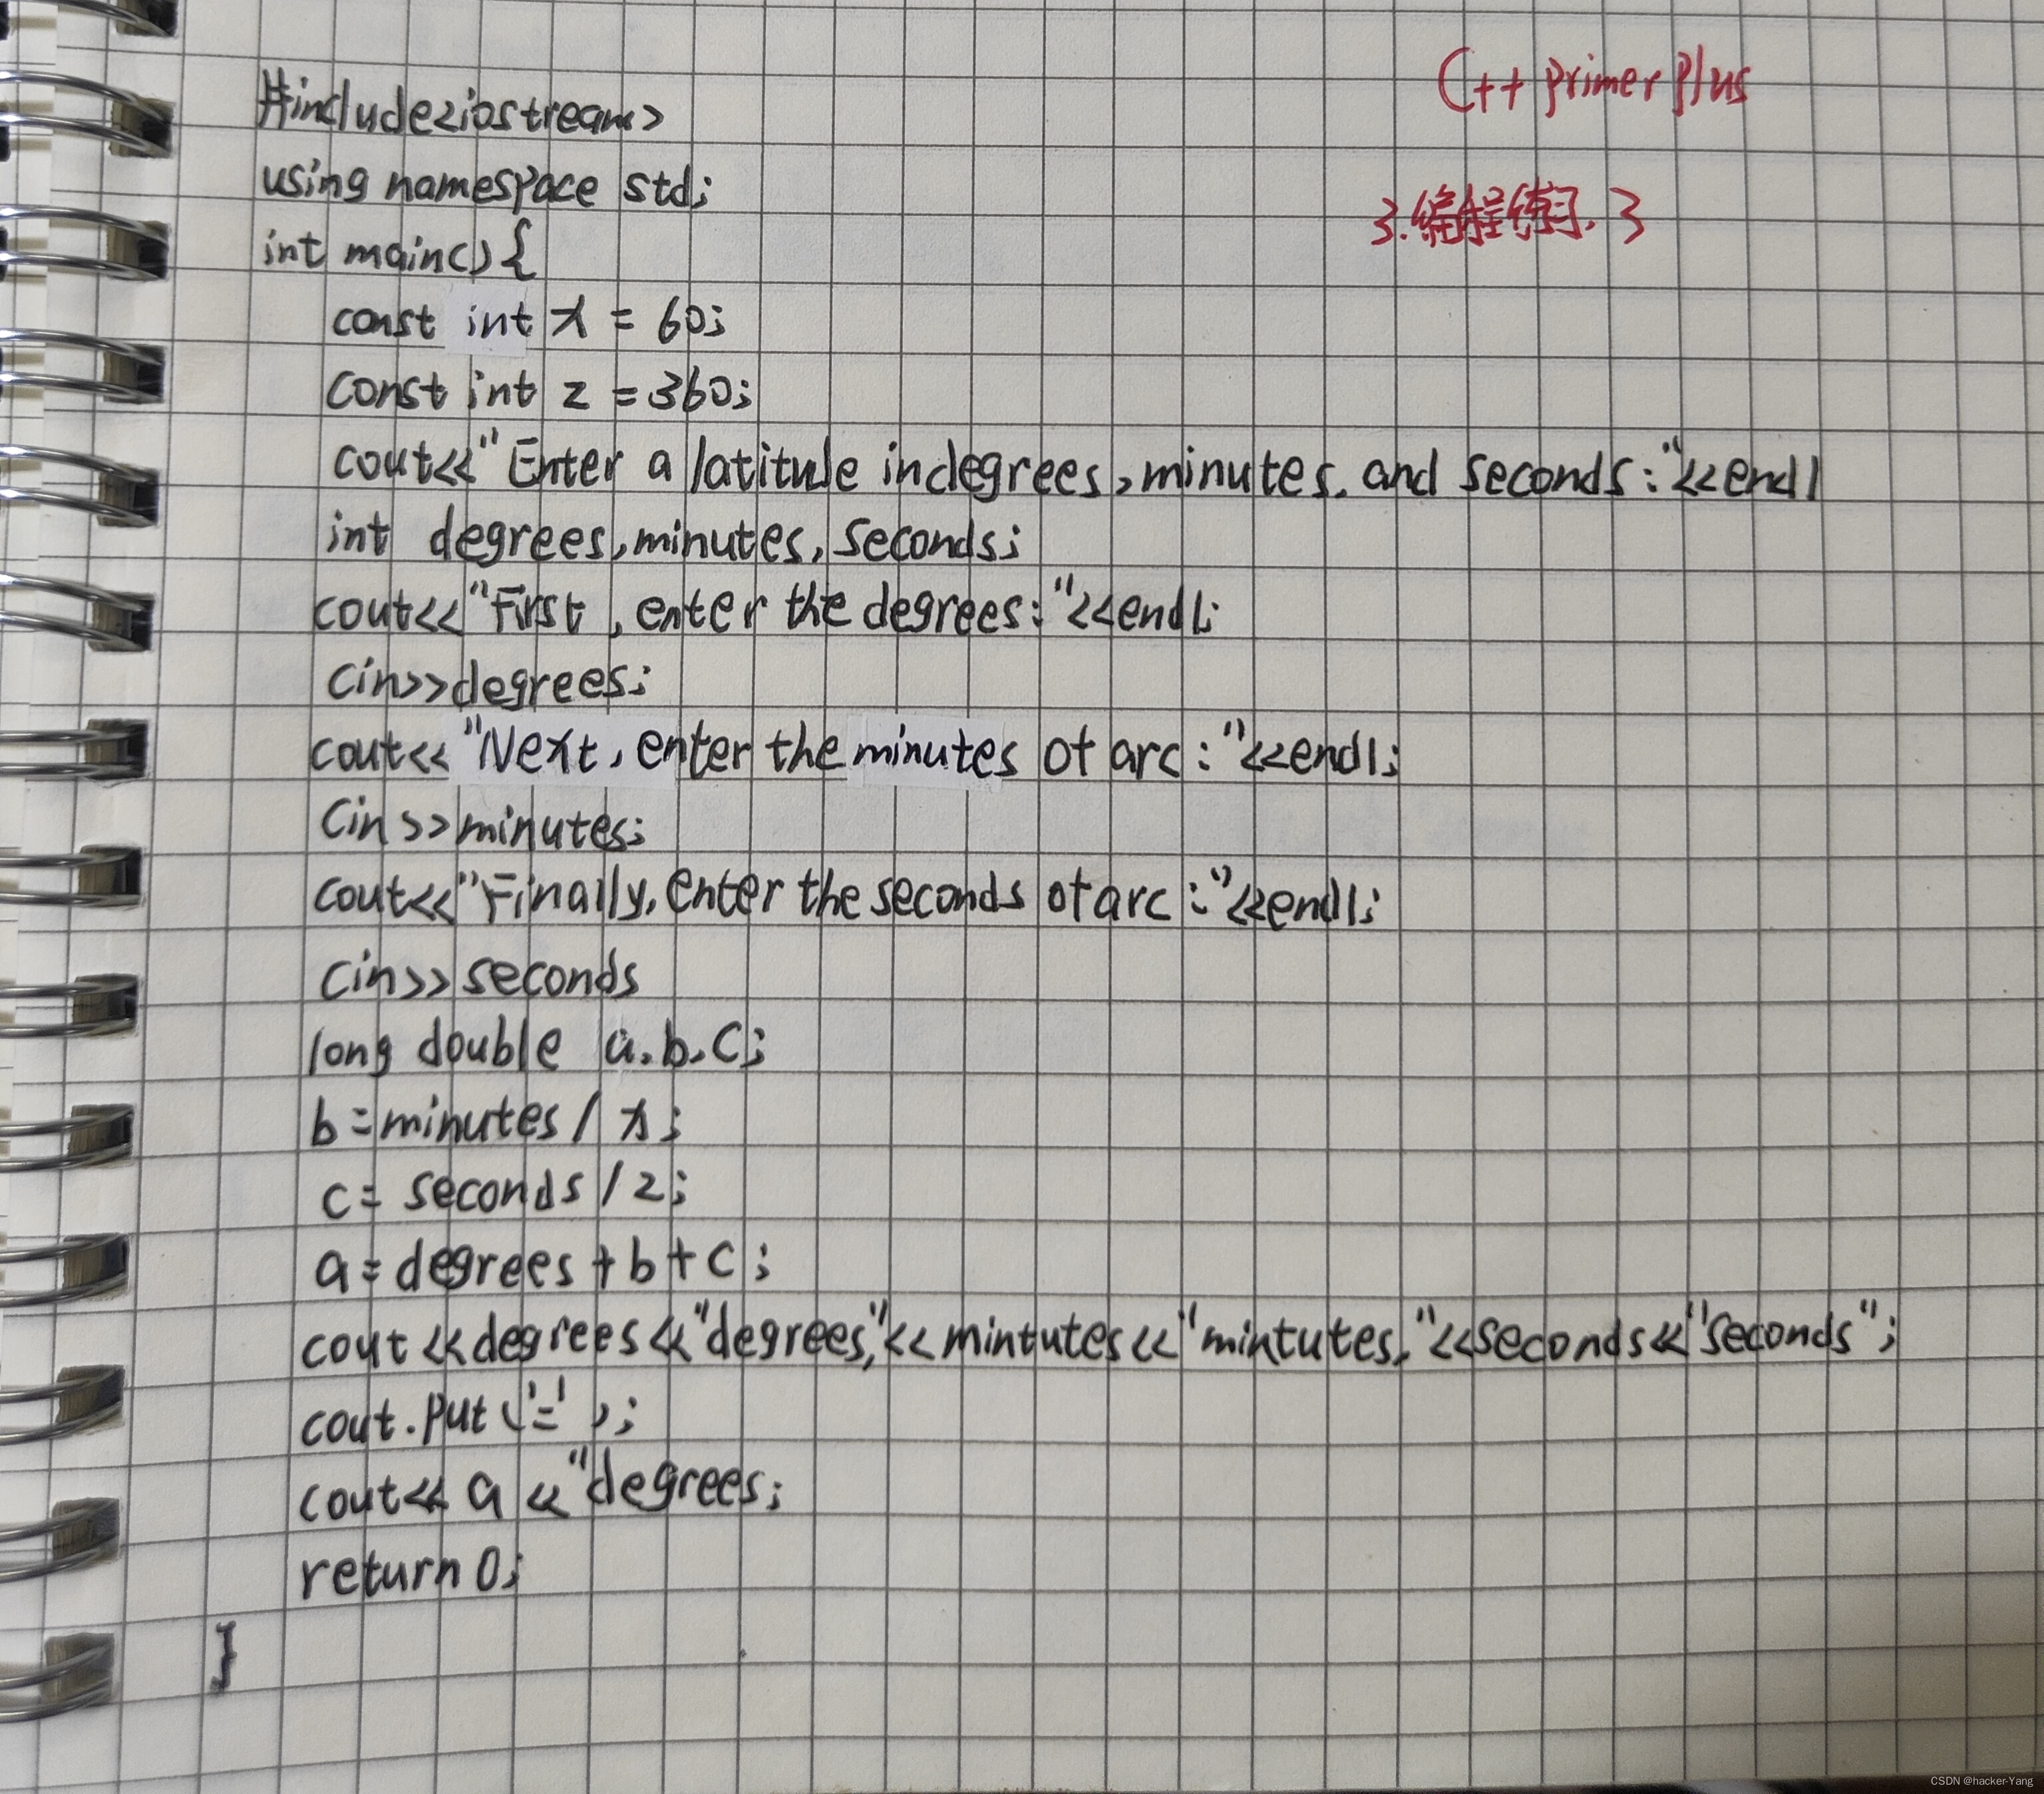 C++ primer plus
3.编程练习.3
#include<iostream>
using namespace std;
int main() {
const int x = 60;
const int z = 360;
cout<<"Enter a latitule in degrees, minutes, and seconds:"<<endl
int degrees, minutes, seconds;
cout<<"First, enter the degrees:"<<endl;
cin>>degrees;
cout<<"Next, enter the minutes of arc:"<<endl;
cin>>minutes;
cout<<"Finally, enter the seconds of arc:"<<endl;
cin>>seconds
long double a.b.c;
b = minutes / x;
c = seconds / z;
a = degrees + b + c;
cout<<degrees<<"degrees,"<<mintutes<<"mintutes,"<<seconds<<"seconds";
cout.put('=');
cout<< a <<"degrees;
return 0;
}
CSDN @hacker-Yang